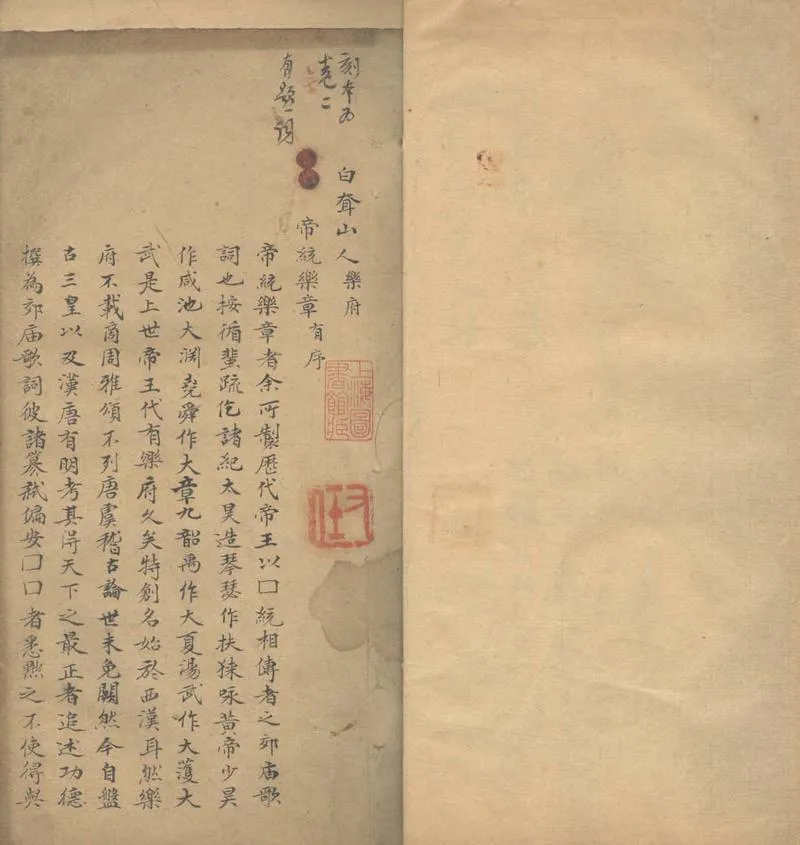 刻本为
卷二
有题词
白耷山人樂府
帝統樂章有序
上海圖
書館臧
帝統樂章者余所製歷代帝王以口統相傳者之郊庙歌
詞也按循蜚疏仡諸紀太昊造琴瑟作扶猍咏黄帝少昊
作咸池大渊堯舜作大章九韶禹作大夏湯武作大濩大
武是上世帝王代有樂府久矣特創名始於西漢耳然樂
府不載商周雅頌不列唐虞稽古論世未免闕然今自盤
古三皇以及漢唐有明考其淂天下之最正者追述功德
撰為郊庙歌詞彼諸篡弑偏安口口者悉黜之不使得與